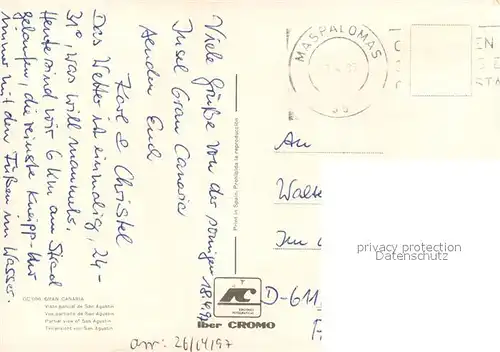 Viele Grüße von der sonnigen 18.4.97
Insel Gran Canaria
senden Euch
Karl & Christel
Das Wetter ist einmalig, 24-
31°, was will man mehr.
Heute sind wir 6 Km am Strand
gelaufen, die reinste Kneipp-Kur
immer mit den Füßen im Wasser.
GRAN CANARIA
Vista parcial de San Agustín
Vue partielle de San Agustin
Partial view of San Agustin
Teilansicht von San Agustin
Printed in Spain. Prohibida la reproducción
iber CROMO
MASPALOMAS
An
Walte
Im
D-611
privacy protection
ansichtskarten-center.de
an: 26/04/97